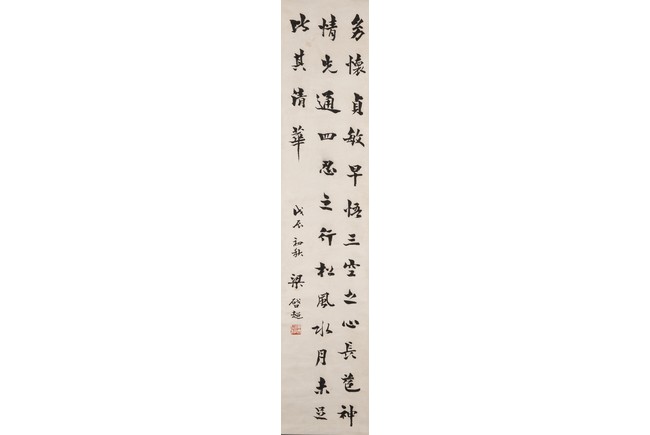 幼懷貞敏早悟三空之心長神
情先通四忍之行松風水月未足
比其清華
戊辰初秋 梁啟超